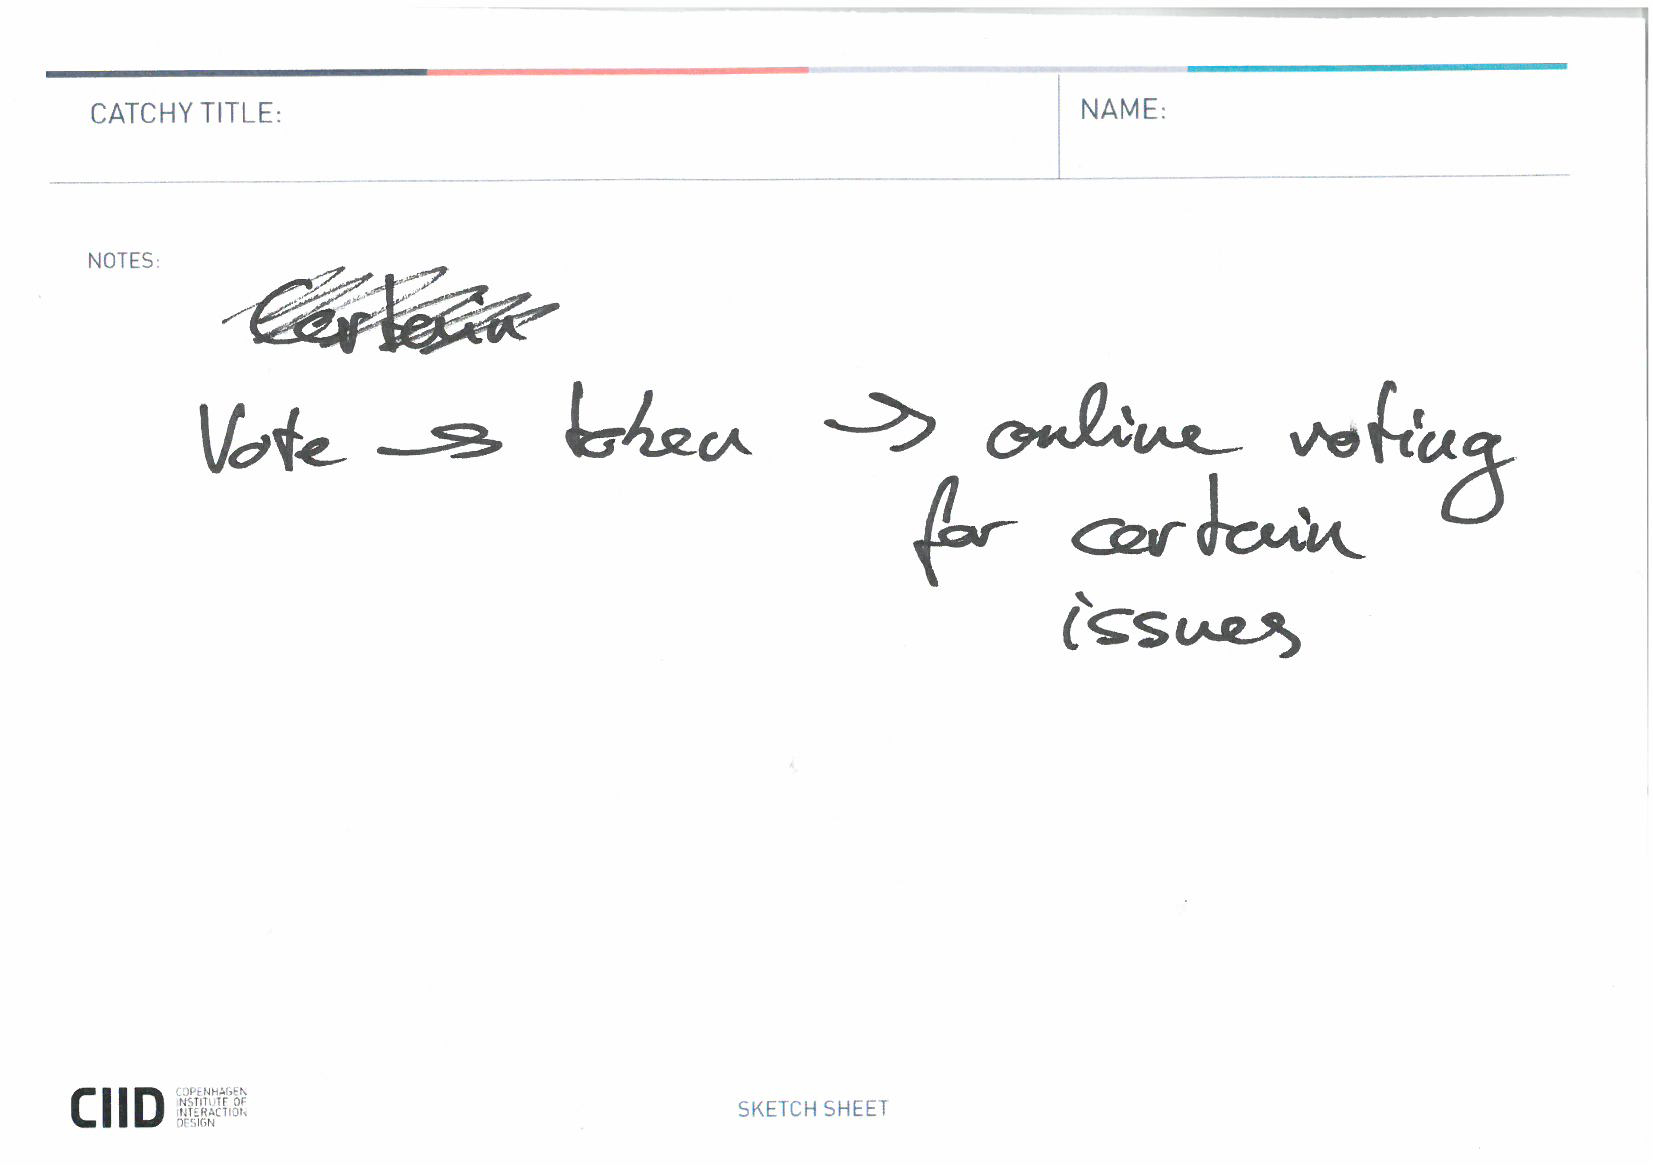 CATCHY TITLE:
NAME:
NOTES:
Certain
Vote → token → online voting
for certain
issues
CIID COPENHAGEN
INSTITUTE OF
INTERACTION
DESIGN
SKETCH SHEET